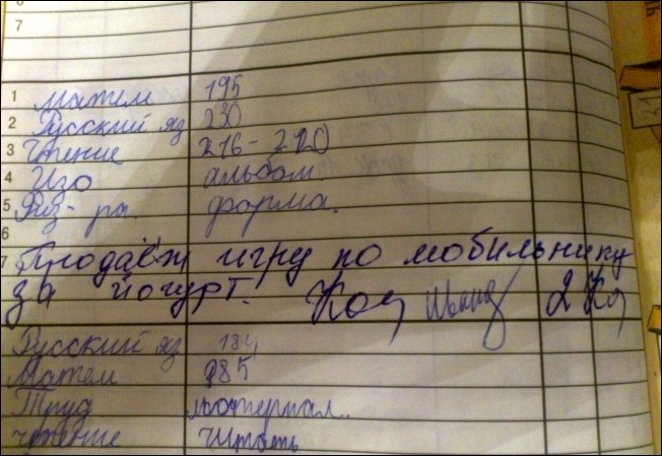 6
7
1 матем 195
2 Русский яз 230
3 Чтение 216-220
4 Изо альбом
5 Физ-ра. форма.
6
7 Продаёж игру по мобильнику
за йогурт. 2
Русский яз 184
Матем 185
Труд. материал..
чтение Читать